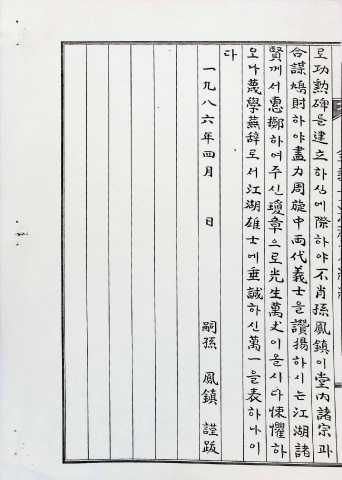 로功勲碑를建立하심에際하야不肖孫鳳鎭이堂內諸宗과
合謀鳩財하야盡力周旋中両代義士을讚揚하시는江湖諸
賢께서惠擲하여주신瓊章으로光生萬丈이올시다悚懼하
오나蔑學蕪辞로서江湖雄士에垂誠하신萬一을表하나이
다
一九八六年四月　日
嗣孫　鳳鎭　謹跋